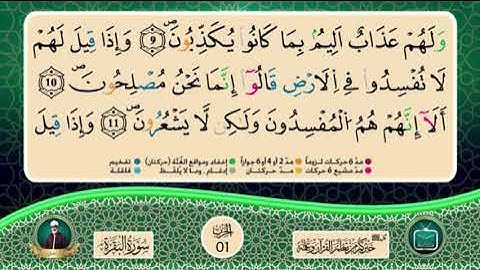 وَلَهُمْ عَذَابٌ اَلِيمُۢ بِمَا كَانُواْ يُكَذِّبُونَۖ 9 وَإِذَا قِيلَ لَهُمْ
لَا تُفْسِدُواْ فِے اِ۬لَارْضِ قَالُوٓاْ إِنَّمَا نَحْنُ مُصْلِحُونَۖ 10
أَلَآ إِنَّهُمْ هُمُ اُ۬لْمُفْسِدُونَ وَلَٰكِن لَّا يَشْعُرُونَۖ 11 وَإِذَا قِيلَ
مدّ 6 حركات لزوماً مدّ 2 أو 4 أو 6 جوازاً إخفاء ومواقع الغُنَّة (حركتان) تفخيم
مدّ مشبع 6 حركات مدّ حركتان إدغام، وما لا يُلفظ قلقلة
خيركم من تعلم القرآن وعلمه
الحزب
01
سورة البقرة